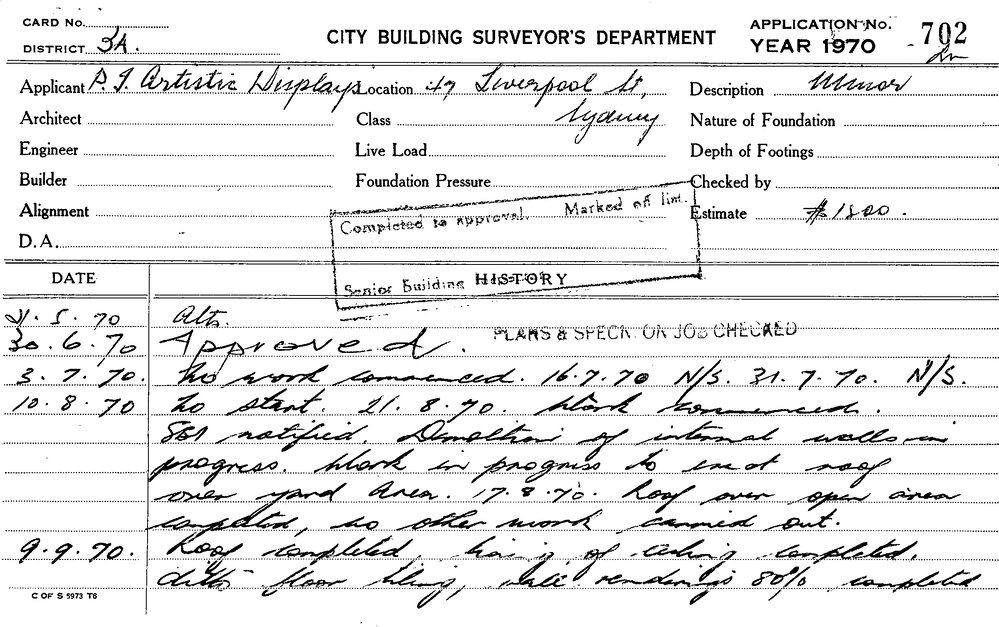 CARD No.
DISTRICT 3A.
CITY BUILDING SURVEYOR'S DEPARTMENT
APPLICATION No. 702
YEAR 1970
Applicant P.J. Artistic Displays Location 47 Liverpool St, Description Minor
Architect Class Sydney Nature of Foundation
Engineer Live Load Depth of Footings
Builder Foundation Pressure Checked by
Alignment Completed to approval. Marked off list. Estimate $1800.
D.A.
Senior Building
DATE HISTORY
21.5.70 Alts.
PLANS & SPECN. ON JOB CHECKED
30.6.70 Approved.
3.7.70. No work commenced. 16.7.70 N/S. 31.7.70. N/S.
10.8.70 No start. 21.8.70. Work commenced.
notified. Demolition of internal walls in
progress. Work in progress to erect roof
over yard area. 17.8.70. Roof over open area
completed, no other work carried out.
9.9.70. Roof completed, of ceiling completed.
ditto floor tiling, wall renderings 80% completed
C OF S 5973 T6